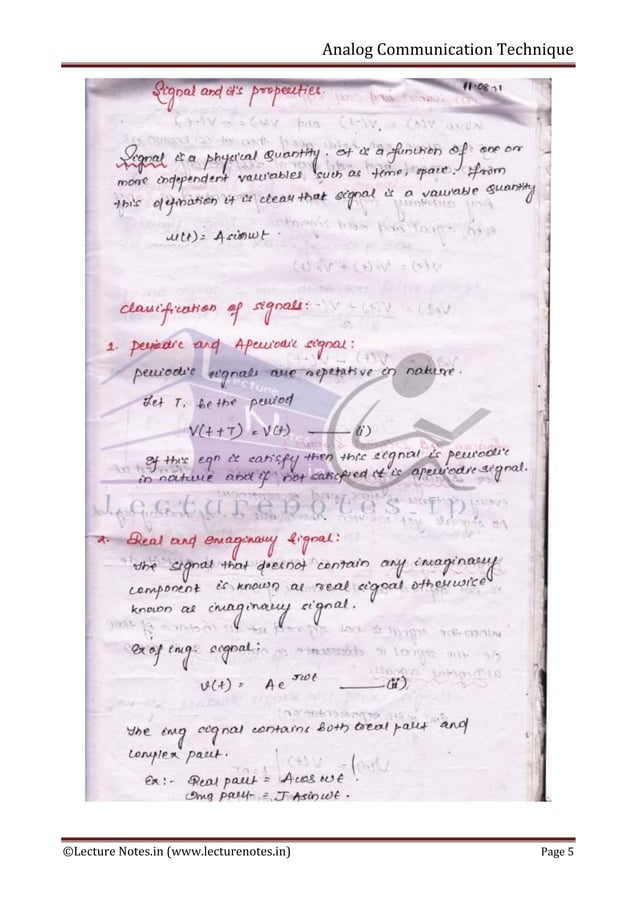 Analog Communication Technique
11-08-11
Signal and it's properties.
Signal is a physical quantity. It is a function of one or
more independent variables such as time, space. From
this defination it is clear that signal is a variable quantity
u(t) = A sinωt.
Classification of signals:
1. periodic and Aperiodic signal:
periodic signals are repetative in nature.
Let T, be the period
V(t+T) = V(t) —— (i)
If this eqn is satisfy then this signal is periodic
in nature and if not satisfied it is aperiodic signal.
Lecturenotes.in
2. Real and Imaginary Signal:
The signal that doesnot contain any imaginary
component is known as real signal otherwise
known as imaginary signal.
Ex of img. signal:
V(t) = A e^Jωt —— (ii)
The img signal contains both real part and
complex part.
Ex:- Real part = A cos ωt.
Img part = J A sin ωt.
©Lecture Notes.in (www.lecturenotes.in)
Page 5